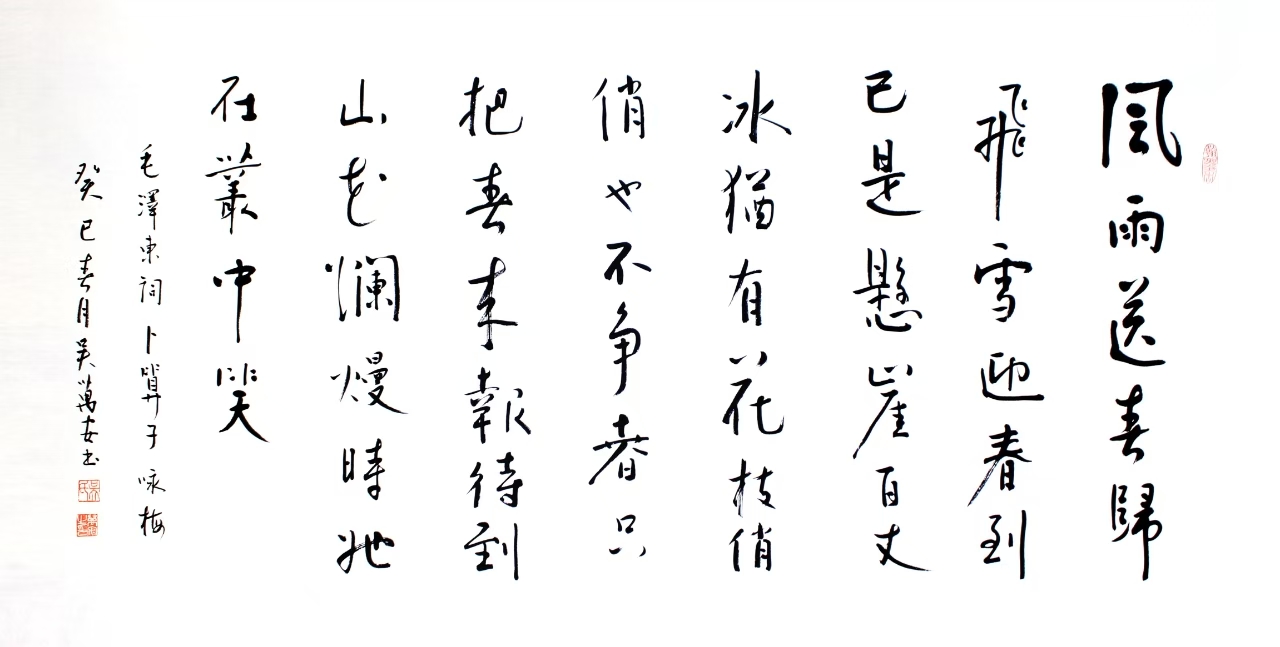 風雨送春歸
飛雪迎春到
已是懸崖百丈
冰猶有花枝俏
俏也不争春只
把春来報待到
山花瀾熳時她
在叢中笑
毛澤東詞卜算子咏梅
癸巳春月吴萬安书